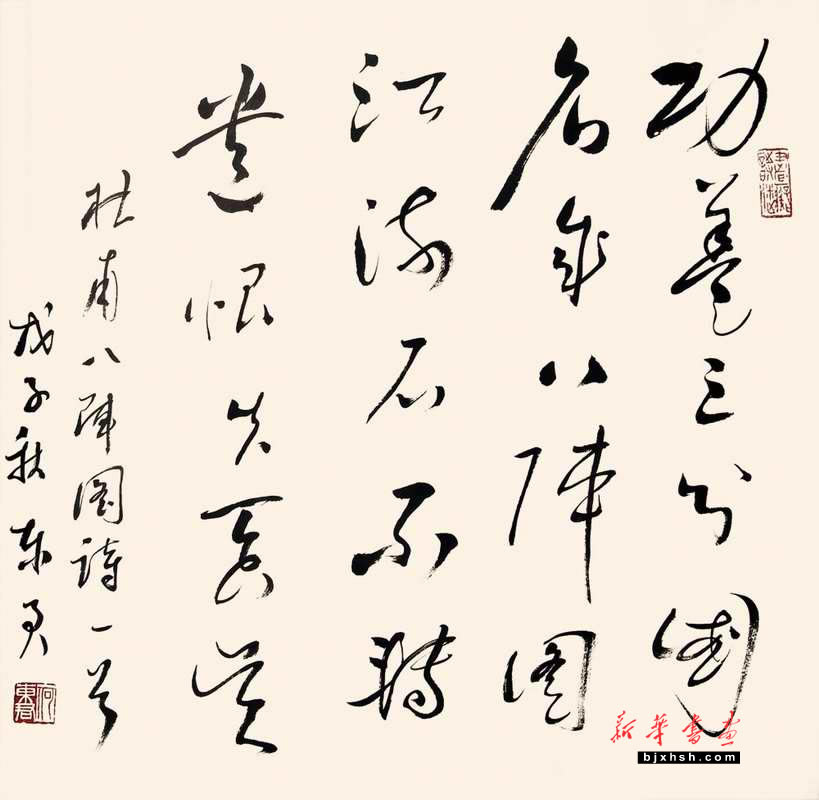 功蓋三分國
名成八陣圖
江流石不轉
遺恨失吞吳
杜甫八陣圖詩一首
戊子秋東
新華書畫
bjxhsh.com